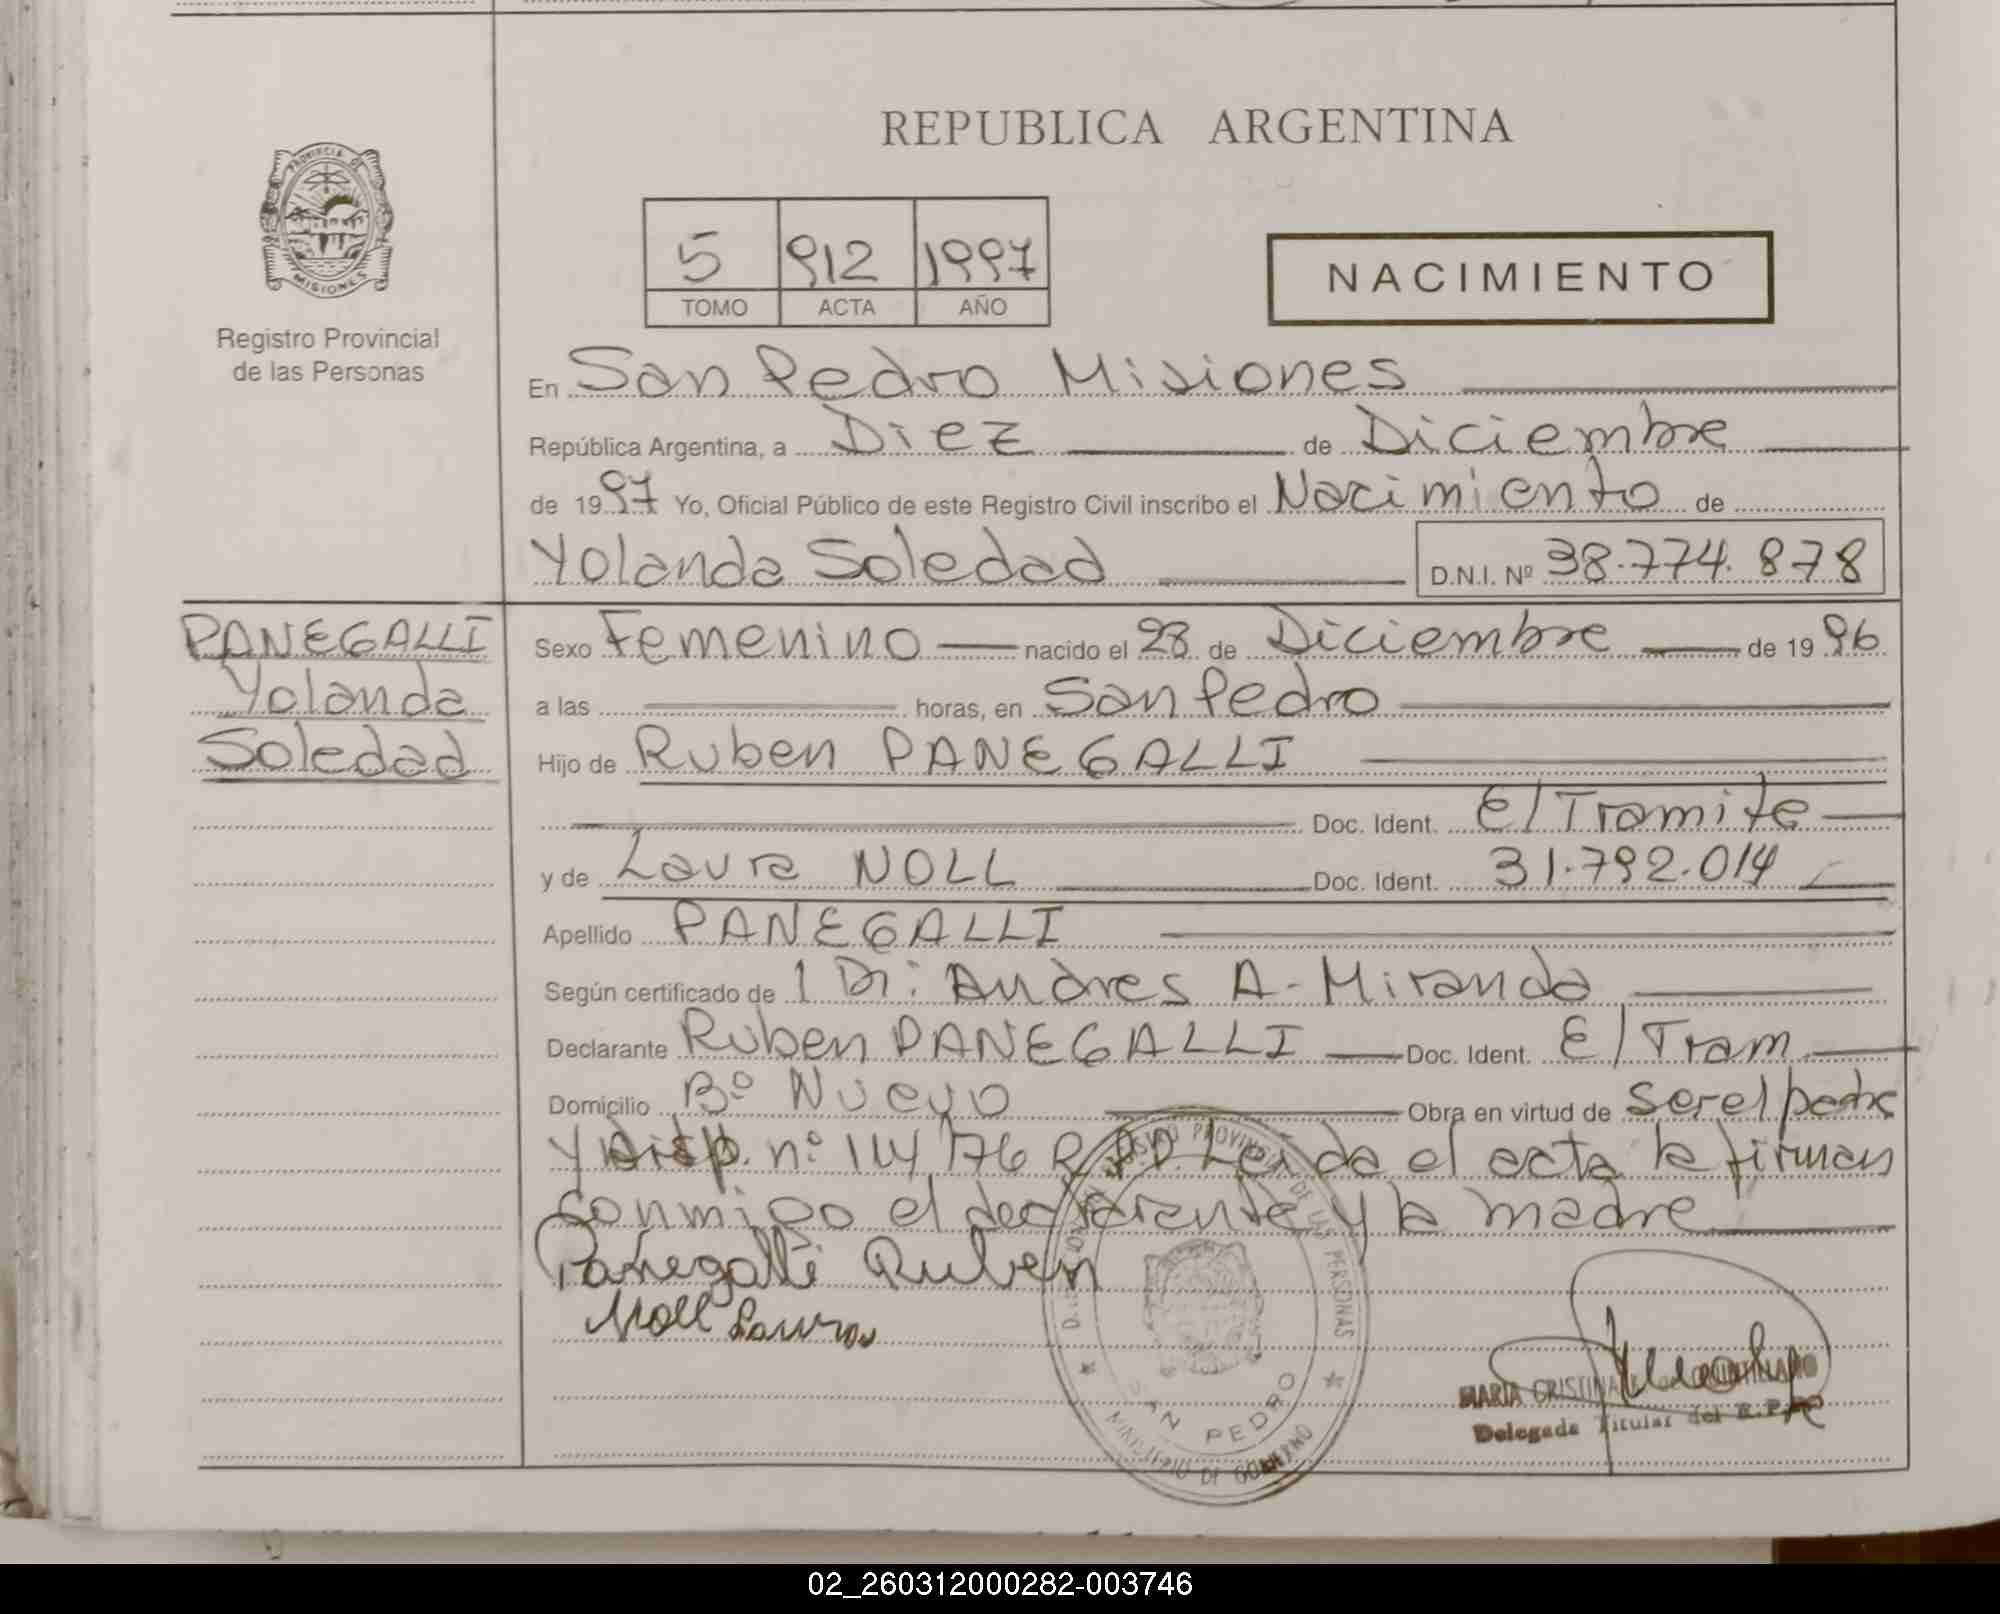 REPUBLICA ARGENTINA
PROVINCIA DE
MISIONES
Registro Provincial
de las Personas
5 912 1997
TOMO ACTA AÑO
NACIMIENTO
En San Pedro Misiones
República Argentina, a Diez de Diciembre
de 1997 Yo, Oficial Público de este Registro Civil inscribo el Nacimiento de
Yolanda Soledad D.N.I. Nº 38.774.878
PANEGALLI
Yolanda
Soledad
Sexo Femenino nacido el 28 de Diciembre de 1996
a las horas, en San Pedro
Hijo de Ruben PANEGALLI
Doc. Ident. E/Tramite
y de Laura NOLL Doc. Ident. 31.792.014
Apellido PANEGALLI
Según certificado de 1 Dr: Andres A- Miranda
Declarante Ruben PANEGALLI Doc. Ident. E/Tram
Domicilio Bº Nuevo Obra en virtud de ser el padre
y Disp. nº 114/76 R.P.P. Leida el acta la firman
conmigo el declarante y la madre
Panegalli Ruben
Noll Laura
REGISTRO PROVINCIAL DE LAS PERSONAS
SAN PEDRO
MINISTERIO DE GOBIERNO
MARIA CRISTINA
Delegada Titular del R.P.P.
02_260312000282-003746